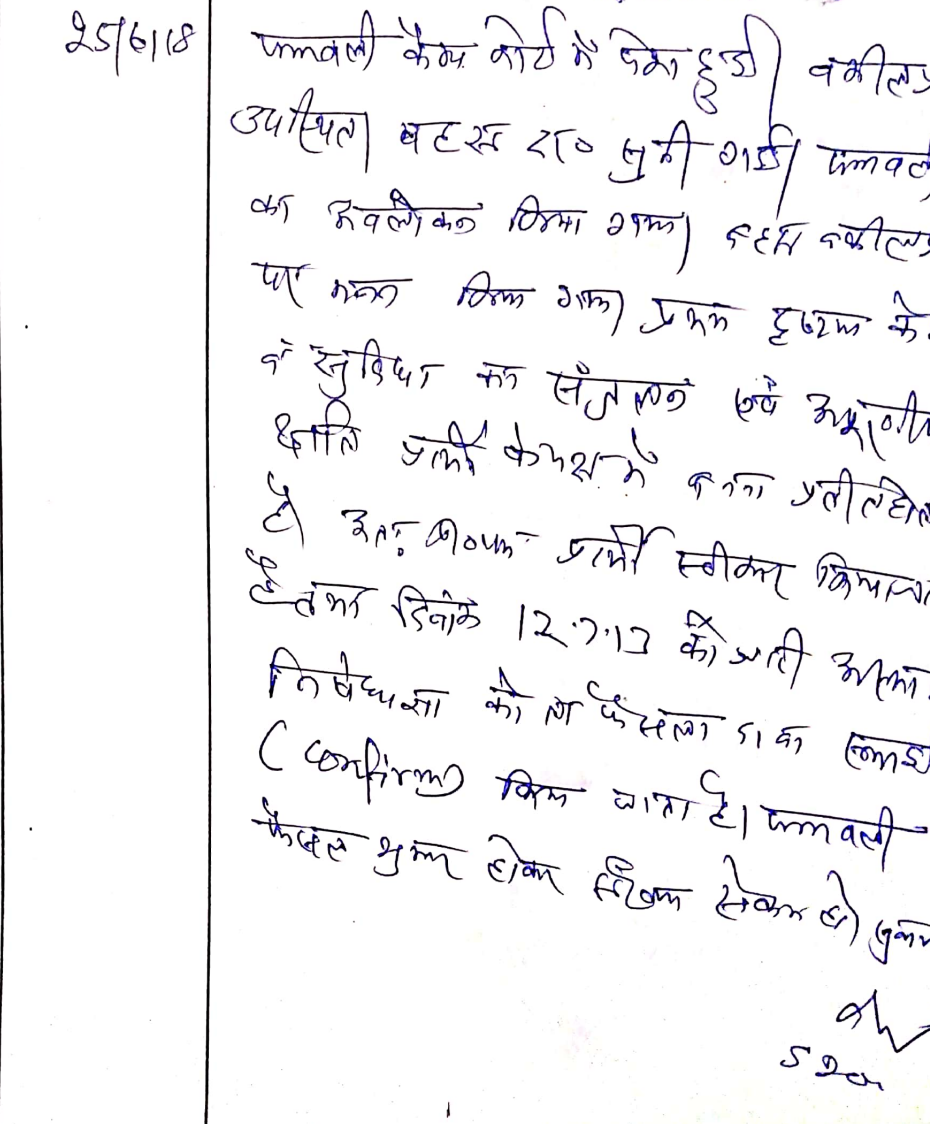 25/6/18 पत्रावली कैम्प कोर्ट में पेश हुई। वकील
उपस्थित। बहस सुनी गई। पत्रावली
का अवलोकन किया गया। बहस वकील
पर मनन किया गया। प्रथम दृष्टया के
व सुविधा का संतुलन एवं अपूर्णीय
क्षति प्रार्थी के पक्ष में बनना प्रतीत होत
है। अतः प्रार्थी स्वीकार किया जा
है तथा दिनांक 12.7.17 को जारी अस्था.
निषेधाज्ञा को ता फैसला
(confirm) किया जाता है। पत्रावली
फैसल शुमार होकर हो
SDO